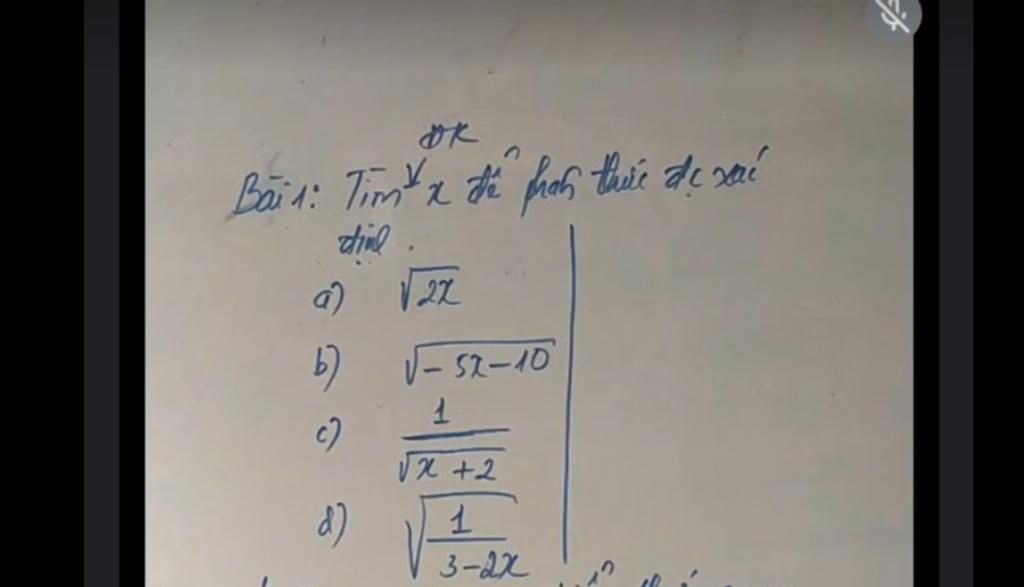 ĐK
Bài 1: Tìm x để phân thức đc xác
định.
a) √2x
b) √-5x-10
c) 1/√x+2
d) √1/3-2x